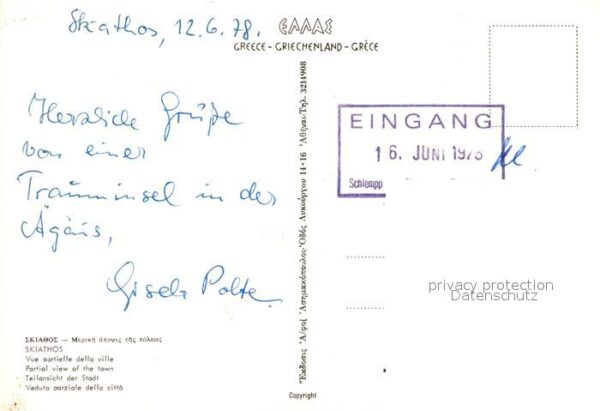 Skiathos, 12.6.78.
ΕΛΛΑΣ
GREECE - GRIECHENLAND - GRÈCE
Herzliche Grüße
von einer
Trauminsel in der
Ägäis,
Gisela Polte
ΣΚΙΑΘΟΣ — Μερική ἄποψις τῆς πόλεως
SKIATHOS
Vue partielle della ville
Partial view of the town
Teilansicht der Stadt
Veduta parziale della città
Ἔκδοσις Ἀ/φοί Ἀσημακόπουλοι-Ὁδός Λυκούργου 14-16 Ἀθῆναι-Τηλ. 3214908
Copyright
EINGANG
16. JUNI 1978
Schlempp
privacy protection
Datenschutz